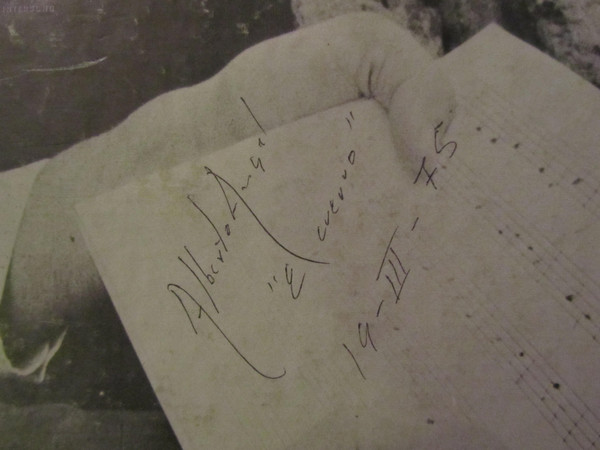 Alberto Angel
"El cuervo"
19-III-75